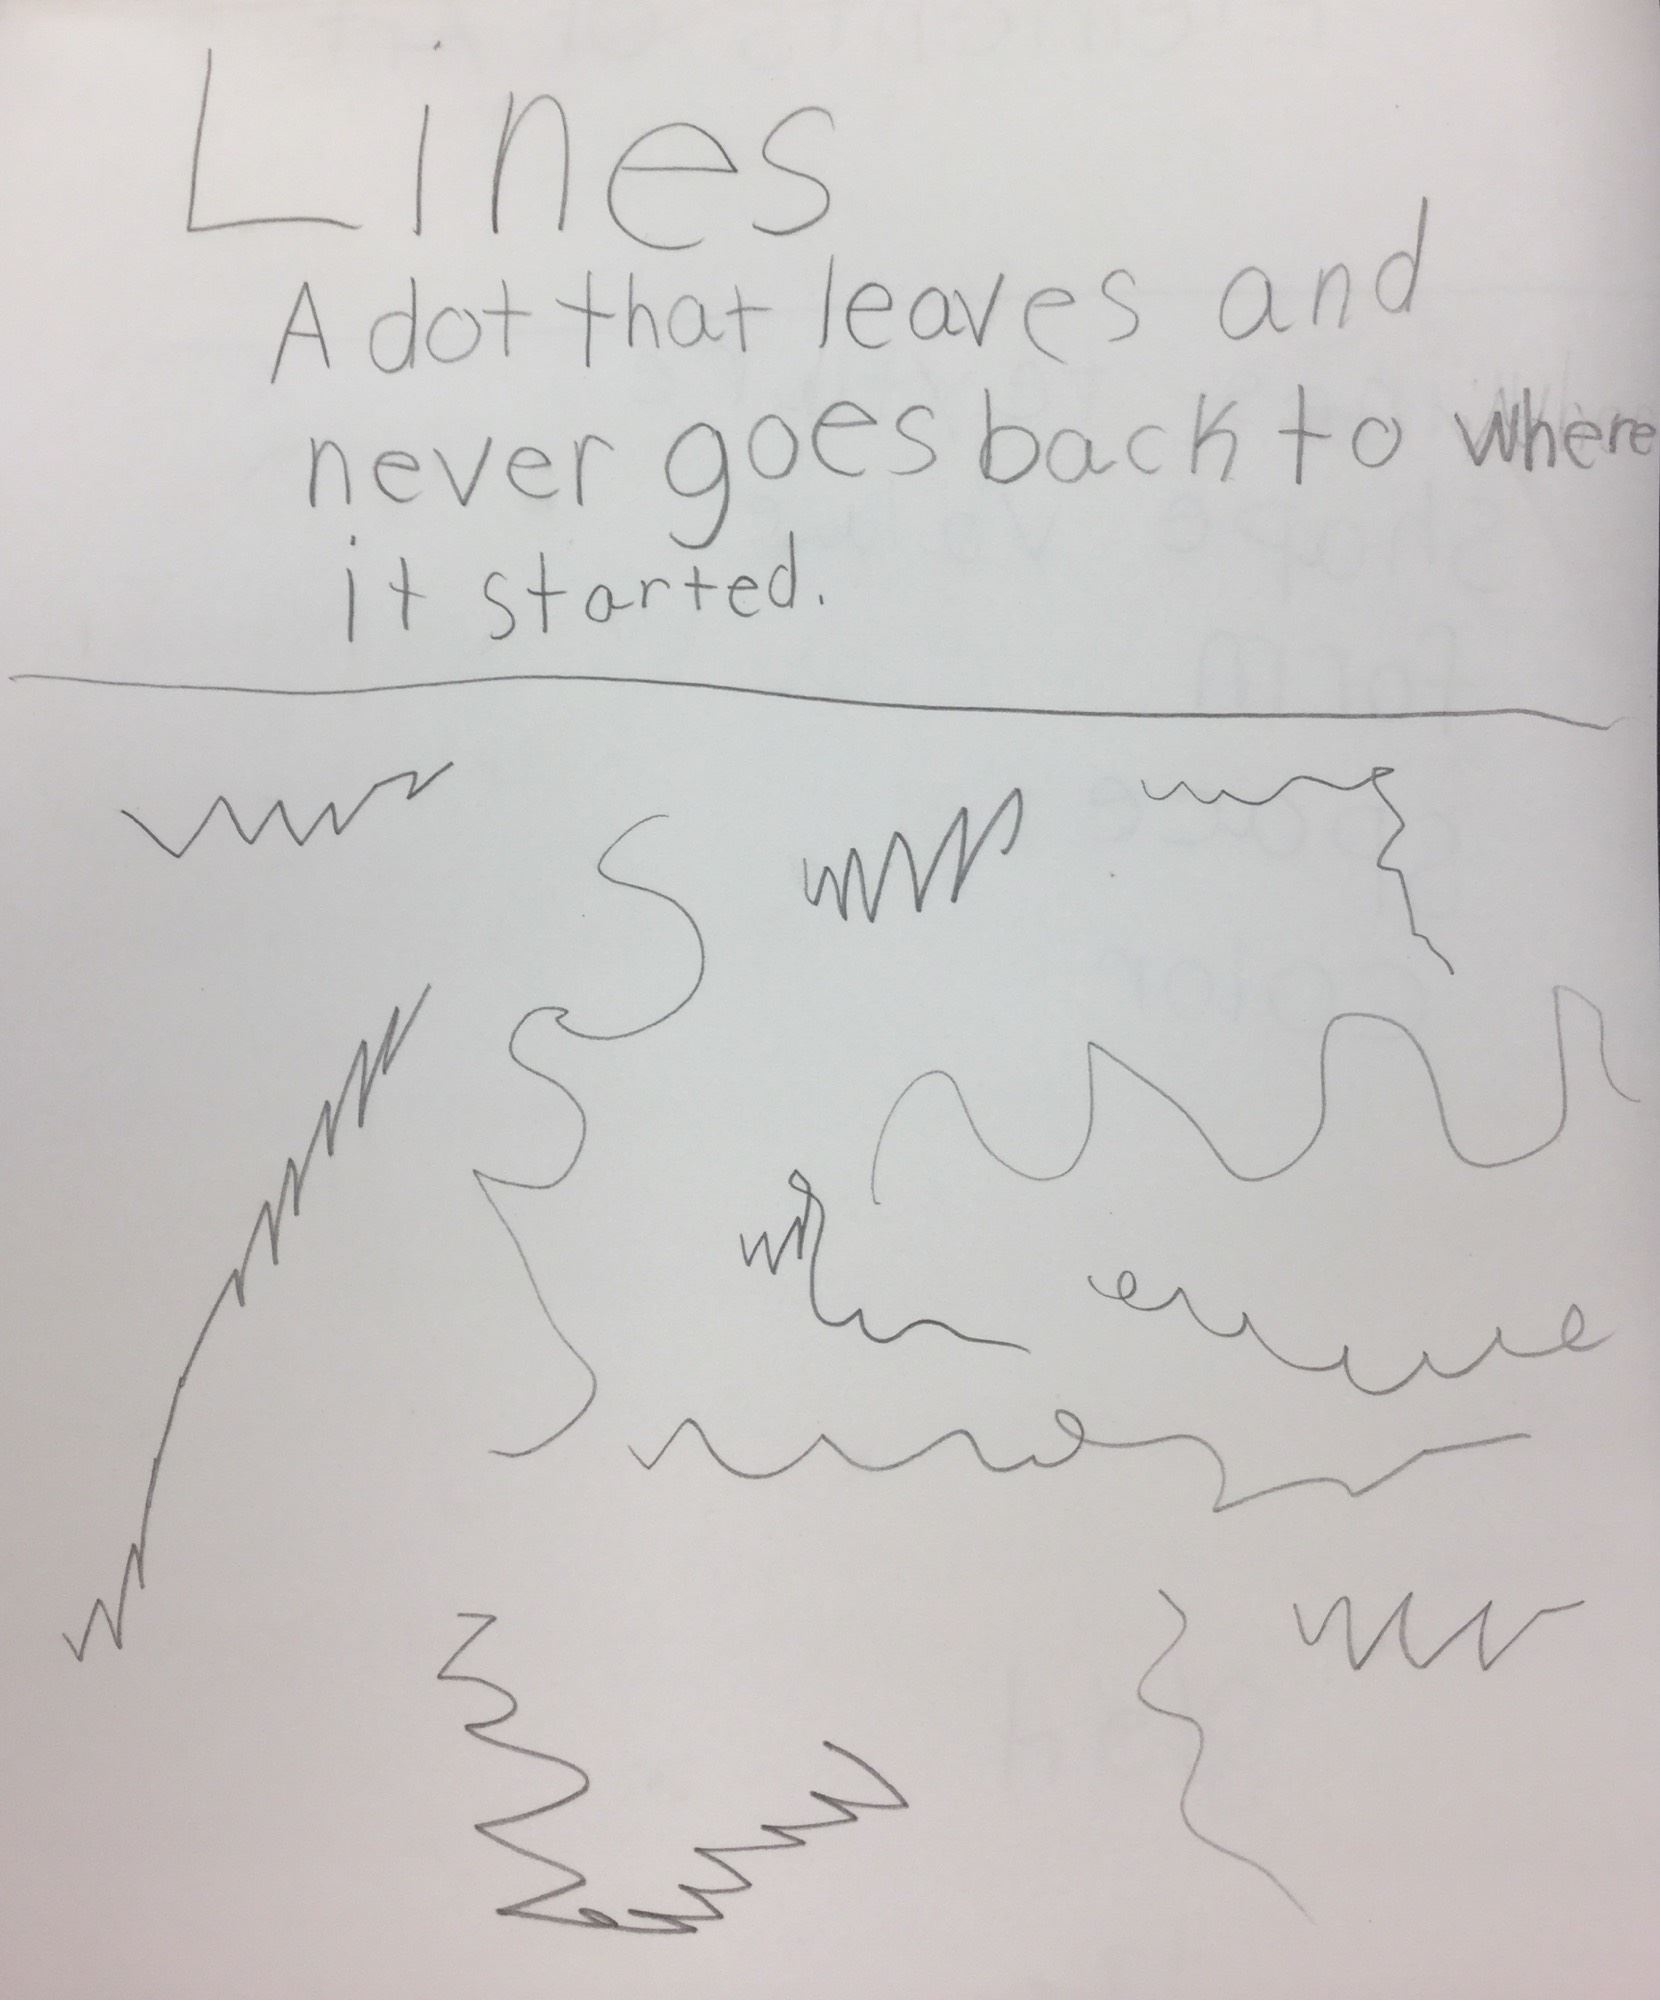 Lines
A dot that leaves and
never goes back to where
it started.